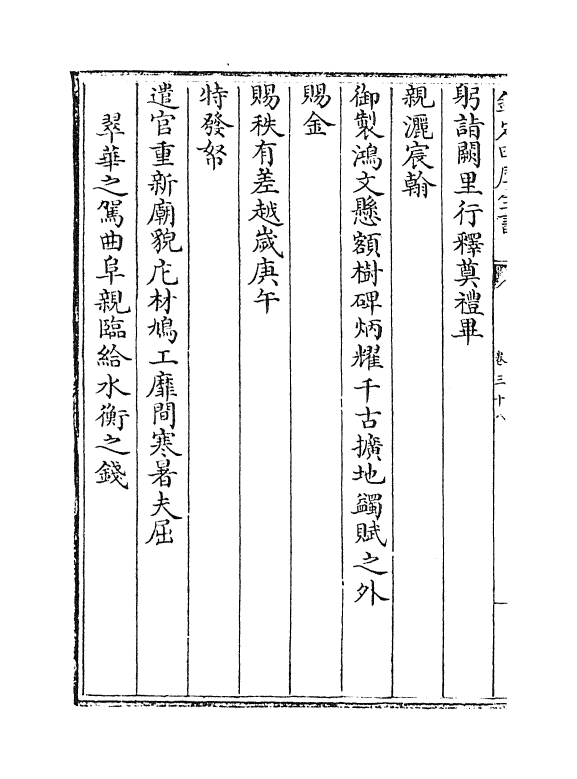 欽定四庫全書
卷三十八
躬詣闕里行釋奠禮畢
親灑宸翰
御製鴻文懸額樹碑炳耀千古擴地蠲賦之外
賜金
賜秩有差越歲庚午
特發帑
遣官重新廟貌庀材鳩工靡間寒暑夫屈
翠華之駕曲阜親臨給水衡之錢